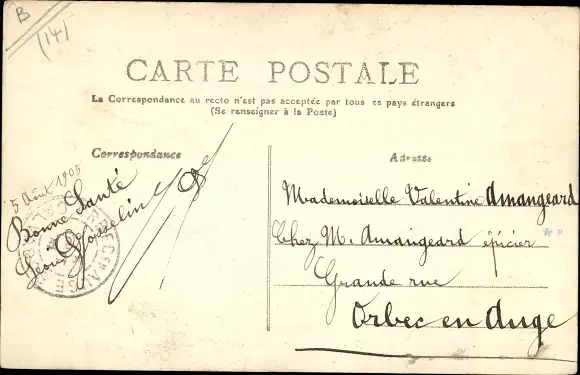 B
(14)
CARTE POSTALE
La Correspondance au recto n'est pas acceptée par tous es pays étrangers
(Se renseigner à la Poste)
Correspondance
Adresse
5 Août 1905
Bonne Santé
Gosselin
Mademoiselle Valentine Amangeard
Chez M. Amangeard épicier
Grande rue
Orbec en Auge